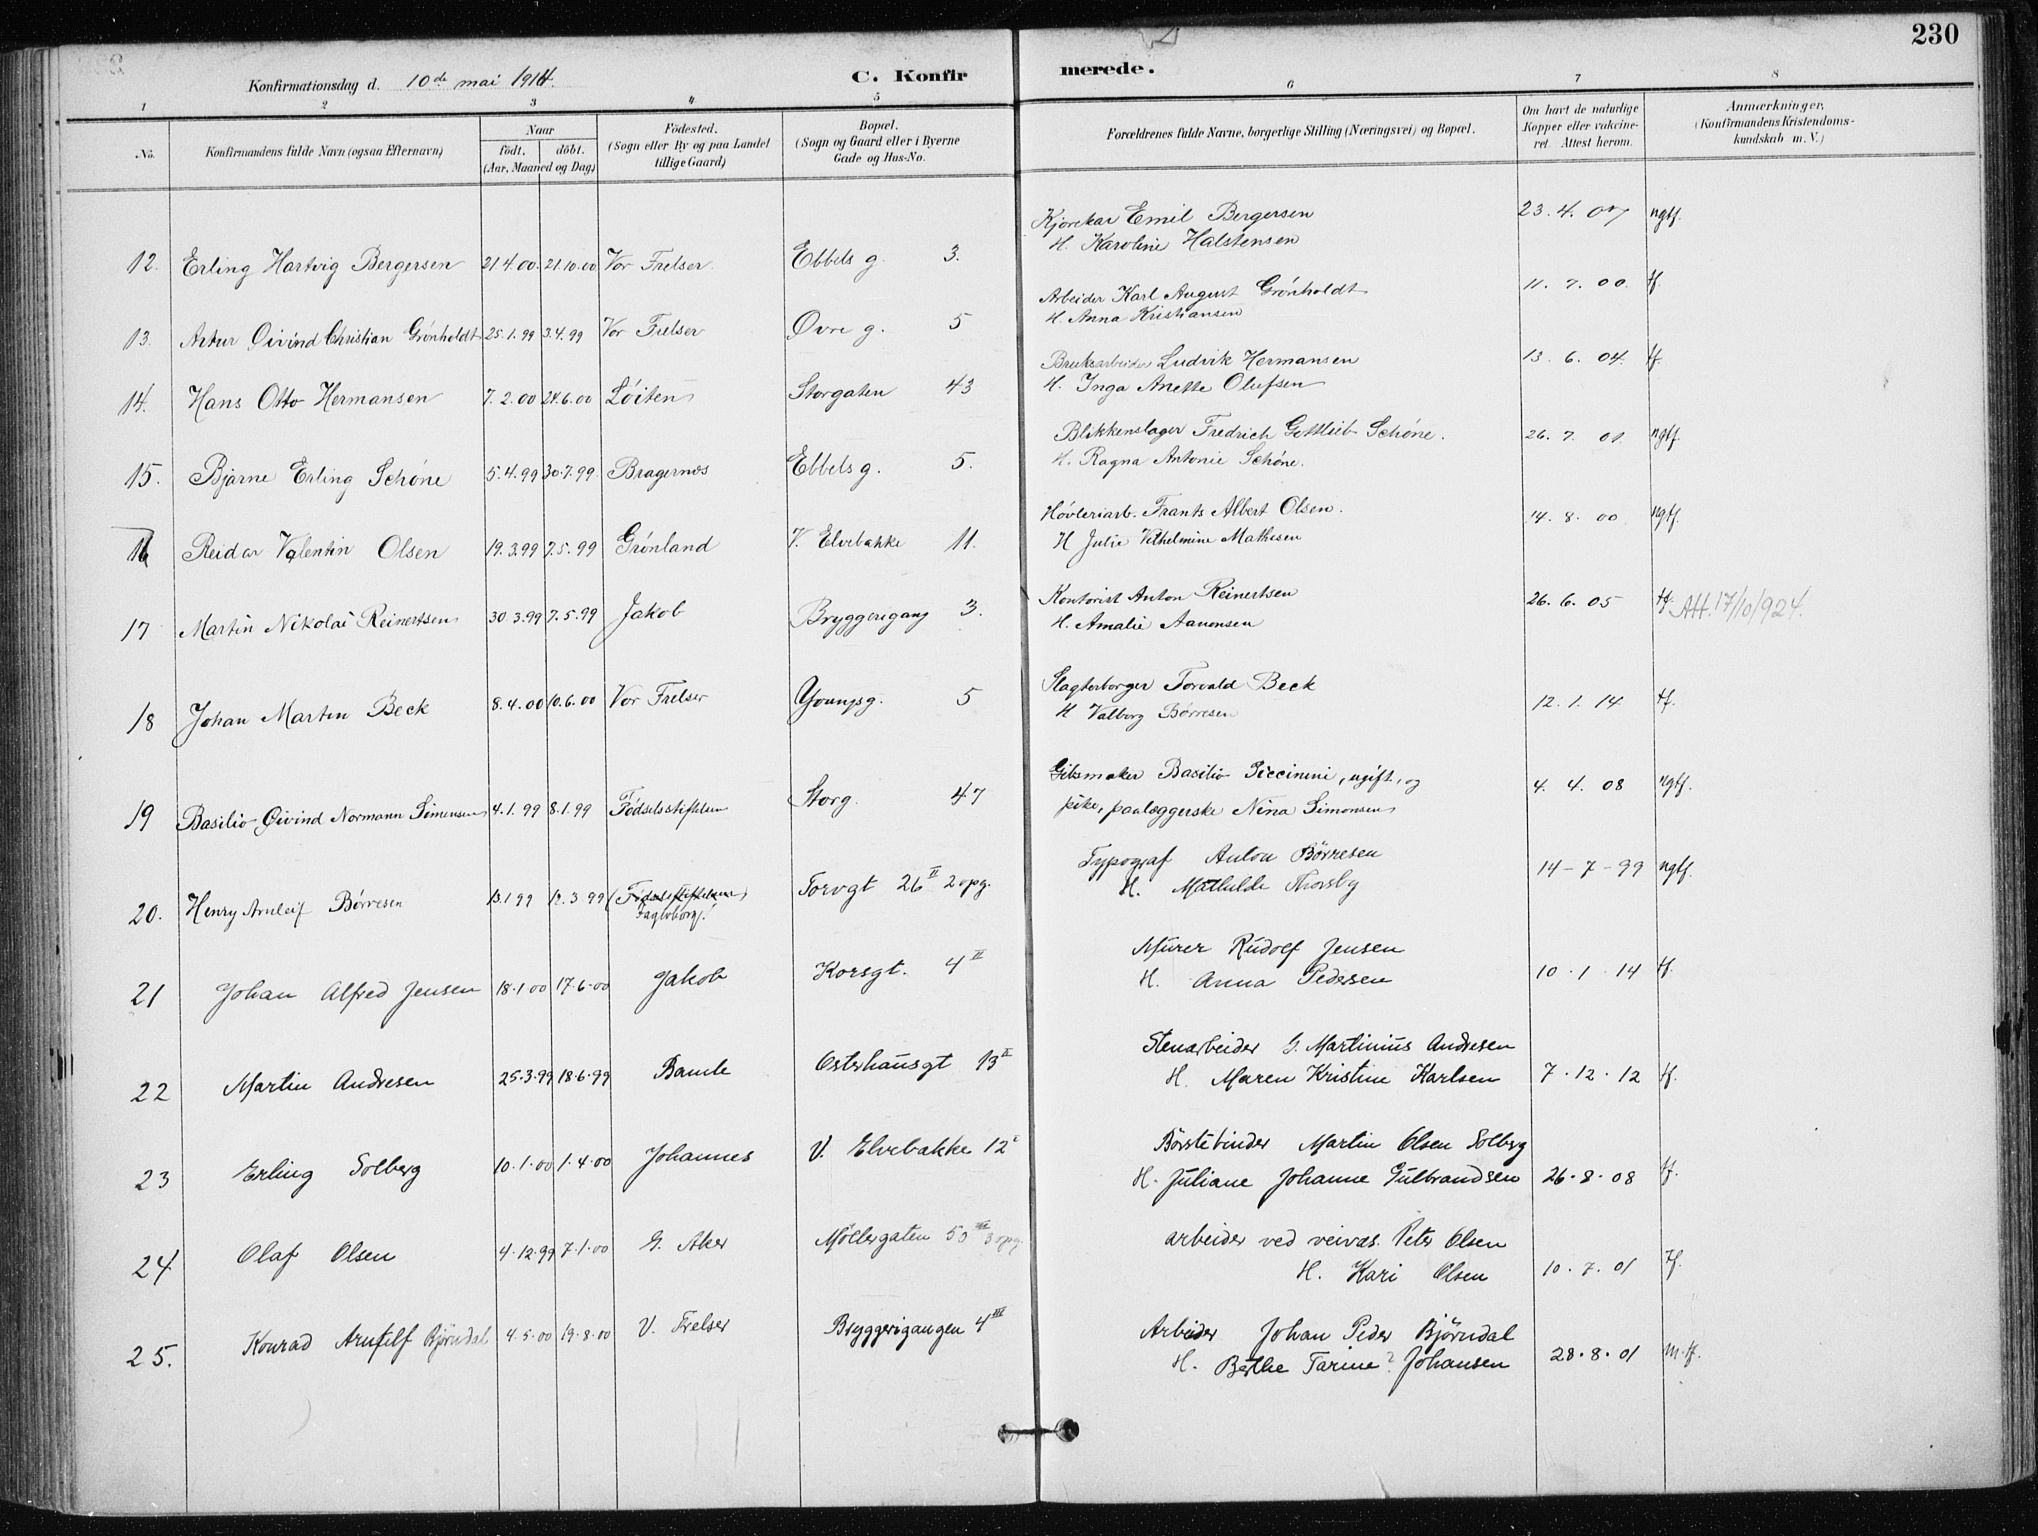 230
Konfirmationsdag d. 10de mai 1914.
C. Konfirmerede.
1 2 3 4 5 6 7 8
No.
Konfirmandens fulde Navn (ogsaa Efternavn)
Naar
født. døbt.
(Aar, Maaned og Dag)
Fødested.
(Sogn eller By og paa Landet
tillige Gaard)
Bopæl.
(Sogn og Gaard eller i Byerne
Gade og Hus-No.
Forældrenes fulde Navne, borgerlige Stilling (Næringsvei) og Bopæl.
Om havt de naturlige
Kopper eller vakcine-
ret. Attest herom.
Anmærkninger.
(Konfirmandens Kristendoms-
kundskab m. V.)
Kjørekar Emil Bergersen 23. 4. 07 ngtf.
H. Karoline Halstensen
12. Erling Hartvig Bergersen 21.4.00. 21.10.00 Vor Frelser. Ebbels g. 3.
Arbeider Karl August Grønholdt 11. 7. 00. tf.
H. Anna Kristiansen
13. Artur Øivind Christian Grønholdt 25.1.99 3.4.99 Vor Frelser Øvre g. 5
Bruksarbeider Ludvik Hermansen 13. 6. 04. tf.
H. Inga Anette Olufsen
14. Hans Otto Hermansen 7.2.00 24.6.00 Løiten Storgaten 43
Blikkenslager Fredrich Gottlieb Schøne. 26. 7. 01. ngtf.
H. Ragna Antonie Schøne.
15. Bjarne Erling Schøne 5.4.99 30.7.99. Bragernes Ebbels g. 5.
Høvleriarb. Frants Albert Olsen. 14. 8. 00. ngtf.
H Julie Vilhelmine Mathisen
16 Reidar Valentin Olsen 19.3.99 7.5.99 Grønland V. Elvebakke 11.
Kontorist Anton Reinertsen 26. 6. 05 tf. Att. 17/10/924.
H. Amalie Aanonsen
17 Martin Nikolai Reinertsen 30.3.99 7.5.99 Jakob Bryggerigang 3.
Slagterborger Torvald Beck 12. 1. 14 tf.
H Valborg Børresen
18 Johan Martin Beck 8.4.00 10.6.00 Vor Frelser Youngsg. 5
Gibsmaker Basilio Piccinini, ugift, og 4. 4. 08 ngtf.
pike, paalæggerske Nina Simonsen
19 Basilio Øivind Normann Simensen 4.1.99 8.1.99 Fødselsstiftelsen Storg. 47
Typograf Anton Børresen 14-7-99 ngtf.
H. Mathilde Thorsby
20. Henry Arnleif Børresen 13.1 99 12.3 99 (Fødselsstiftelsen) Torvgt 26 II 2 opg.
Fagerborg!
Murer Rudolf Jensen
H. Anna Pedersen 10.1.14 tf.
21 Johan Alfred Jensen 18.1.00 17.6.00 Jakob Korsgt. 4 II
Stenarbeider G. Martinius Andresen
H. Maren Kristine Karlsen 7.12.12 tf.
22 Martin Andresen 25.3.99 18.6.99 Bamle Osterhausgt 13 II
Børstebinder Martin Olsen Solberg
H. Juliane Johanne Gulbrandsen 26.8.08 tf.
23 Erling Solberg 10.1.00 1.4.00 Johannes V. Elvebakke 12 I
Arbeider ved veivæs. Peter Olsen
H. Kari Olsen 10.7.01 tf.
24 Olaf Olsen 4.12.99 7.1.00 G. Aker Møllergaten 50 III 3 opg.
Arbeider Johan Peder Bjørndal
H. Berthe Tarine? Johansen 28.8.01 m.tf.
25. Konrad Bjørndal 4.5.00 19.8.00 V. Frelser Bryggerigangen 4 III